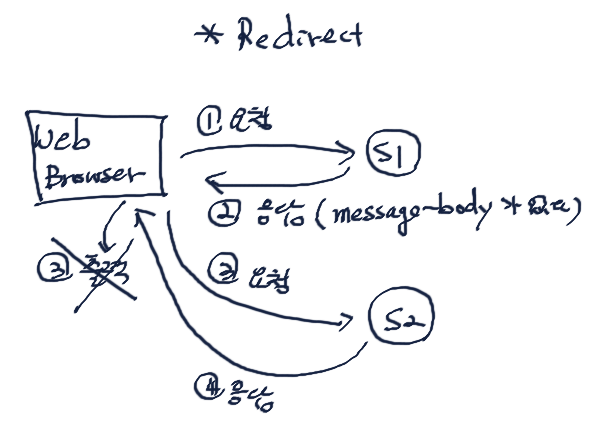 * Redirect
① 요청
Web
Browser
S1
② 응답 (message-body * 필요)
③ 출력
③ 요청
S2
④ 응답